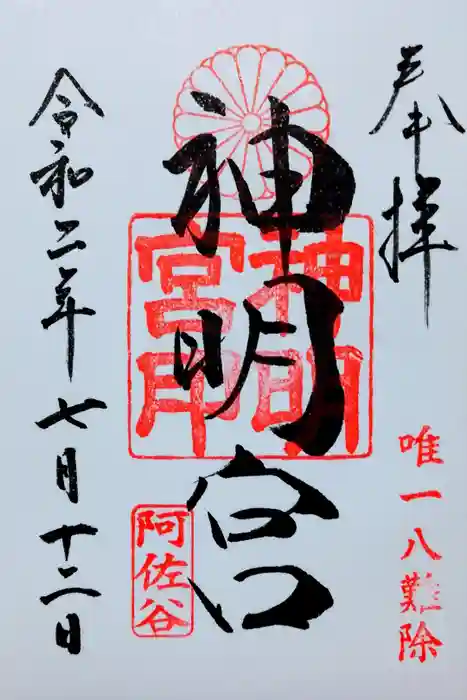 奉拝
唯一八難除
神明宮
神明宮印
阿佐谷
令和二年七月十二日